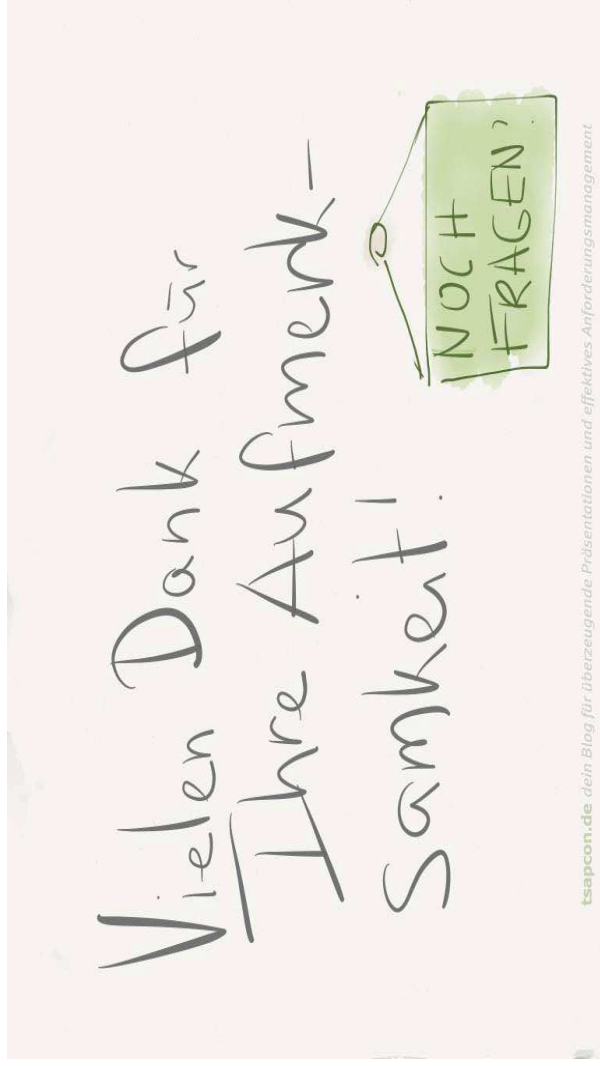 Vielen Dank für
Ihre Aufmerk-
samkeit!
NOCH
FRAGEN?
tsapcon.de dein Blog für überzeugende Präsentationen und effektives Anforderungsmanagement